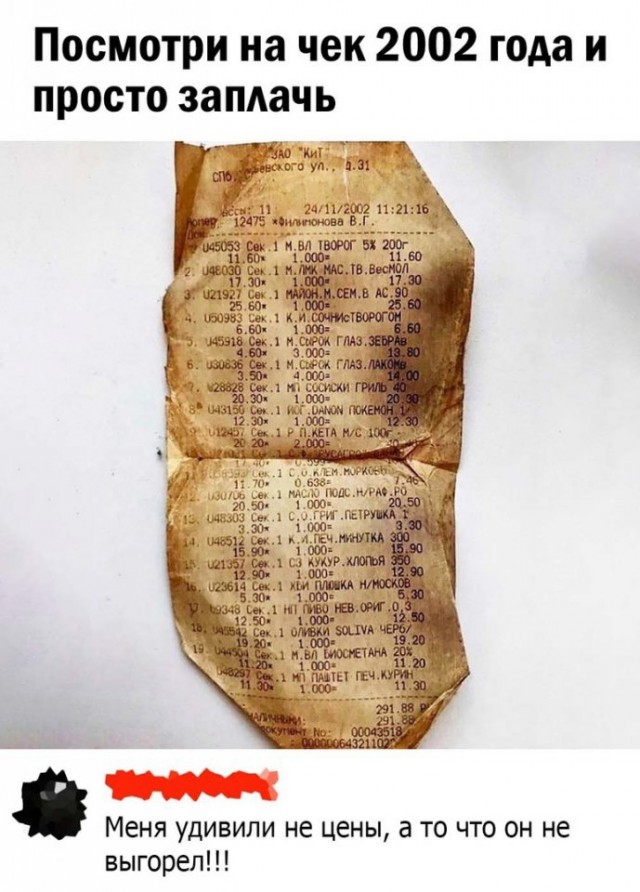 Посмотри на чек 2002 года и
просто заплачь
ЗАО "КиТ"
СПб, ул., д.31
11 24/11/2002 11:21:16
12475 *Филимонова В.Г.
U45053 Сек.1 М.ВЛ ТВОРОГ 5% 200г
11.60* 1.000= 11.60
2. U48030 Сек.1 М./МК МАС.ТВ.ВесМОЛ
17.30* 1.000= 17.30
3. U21927 Сек.1 МАЙОН.М.СЕМ.В АС.90
25.60* 1.000= 25.60
4. U50983 Сек.1 К.И.СОЧНИсТВОРОГОМ
6.60* 1.000= 6.60
5. U45918 Сек.1 М.СЫРОК ГЛАЗ.ЗЕБРАв
4.60* 3.000= 13.80
6. U30836 Сек.1 М.СЫРОК ГЛАЗ.ЛАКОМ
3.50* 4.000= 14.00
7. U28828 Сек.1 МП СОСИСКИ ГРИЛЬ 40
20.30* 1.000= 20.30
8* U43150 Сек.1 ИОГ.DANON ПОКЕМОН 1
12.30* 1.000= 12.30
9. U12457 Сек.1 Р П.КЕТА М/С 100г
20.20* 2.000=
Сек.1 С.О.К/ЛЕМ.МОРКОВЬ
11.70* 0.638= 7.46
U30706 Сек.1 МАСЛО ПОДС.Н/РАФ.РО
20.50* 1.000= 20.50
13. U48303 Сек.1 С.О.ГРИГ.ПЕТРУШКА 1
3.30* 1.000= 3.30
14. U48512 Сек.1 К.И.ПЕЧ.МИНУТКА 300
15.90* 1.000= 15.90
15. U21357 Сек.1 СЗ КУКУР.ХЛОПЬЯ 350
12.90* 1.000= 12.90
16. U23614 Сек.1 ХБИ ПЛЮШКА Н/МОСКОВ
5.30* 1.000= 5.30
17. U9348 Сек.1 НП ПИВО НЕВ.ОРИГ.0,3
12.50* 1.000= 12.50
18. U45542 Сек.1 ОЛИВКИ SOLIVA ЧЕРб/
19.20* 1.000= 19.20
19. U44504 Сек.1 М.ВЛ БИОСМЕТАНА 20%
11.20* 1.000= 11.20
U48297 Сек.1 МП ПАШТЕТ ПЕЧ.КУРИН
11.30* 1.000= 11.30
291.88 Р
НАЛИЧНЫМИ: 291.88
Документ No: 00043518
Меня удивили не цены, а то что он не
выгорел!!!